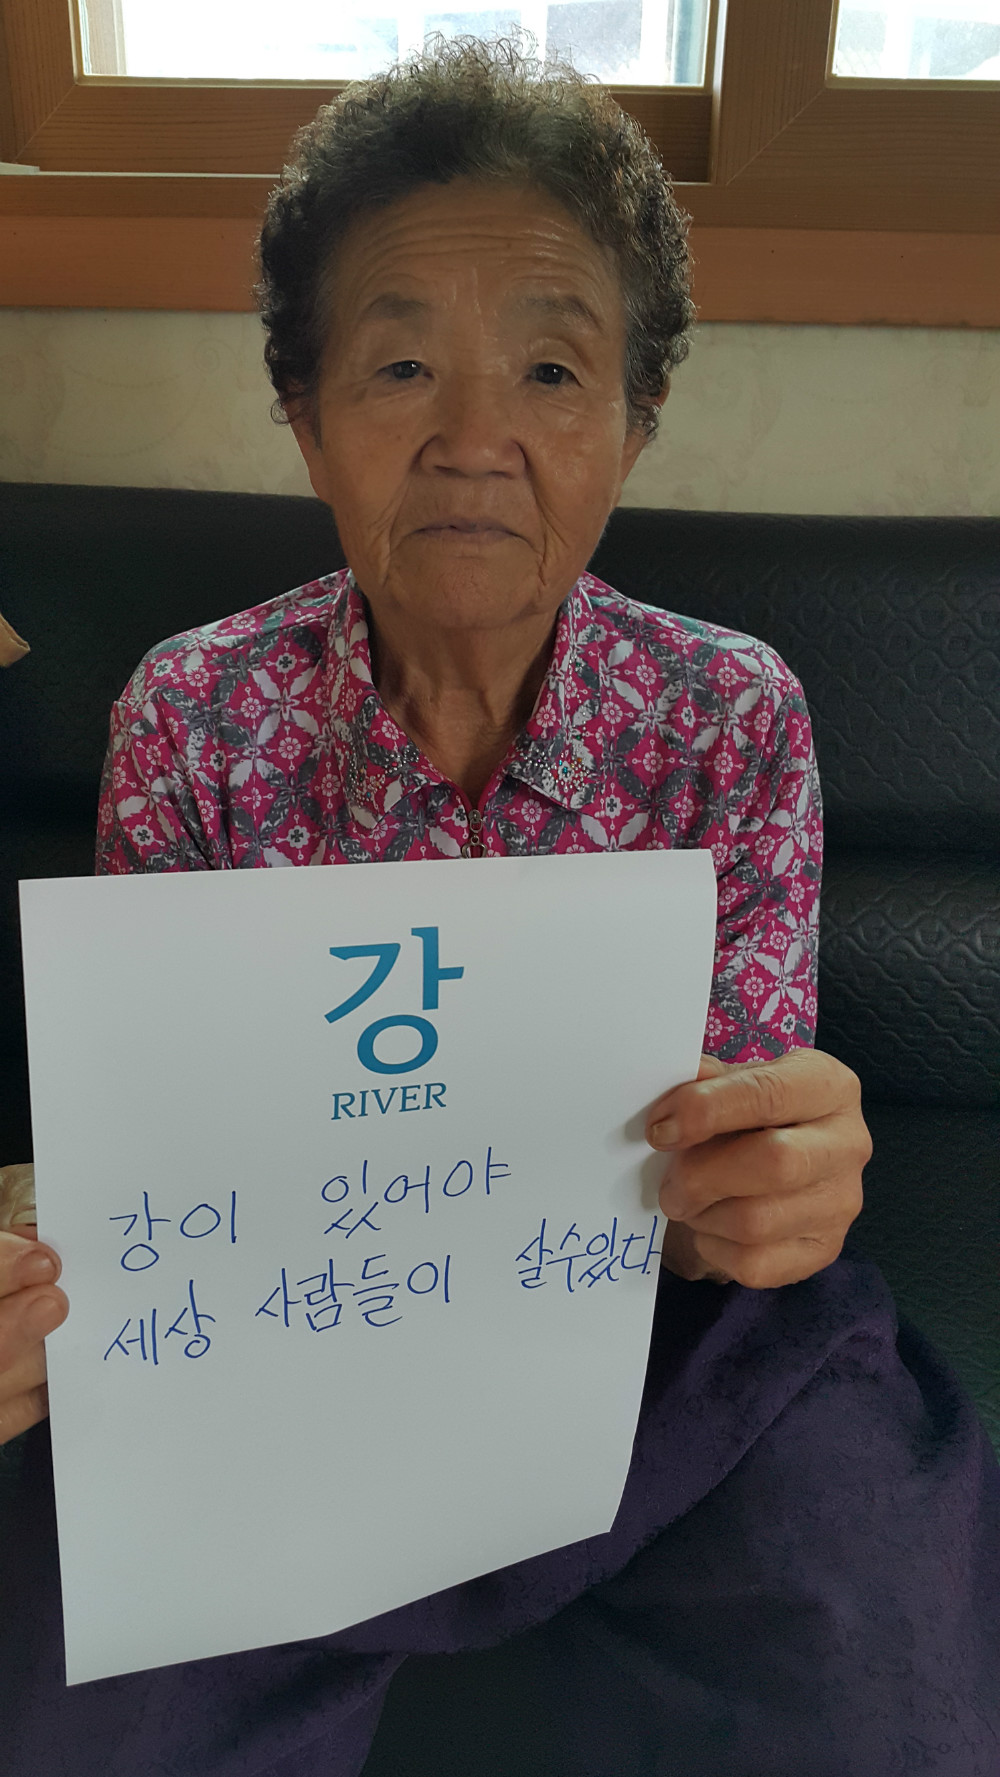 강
RIVER
강이 있어야
세상 사람들이 살수있다.